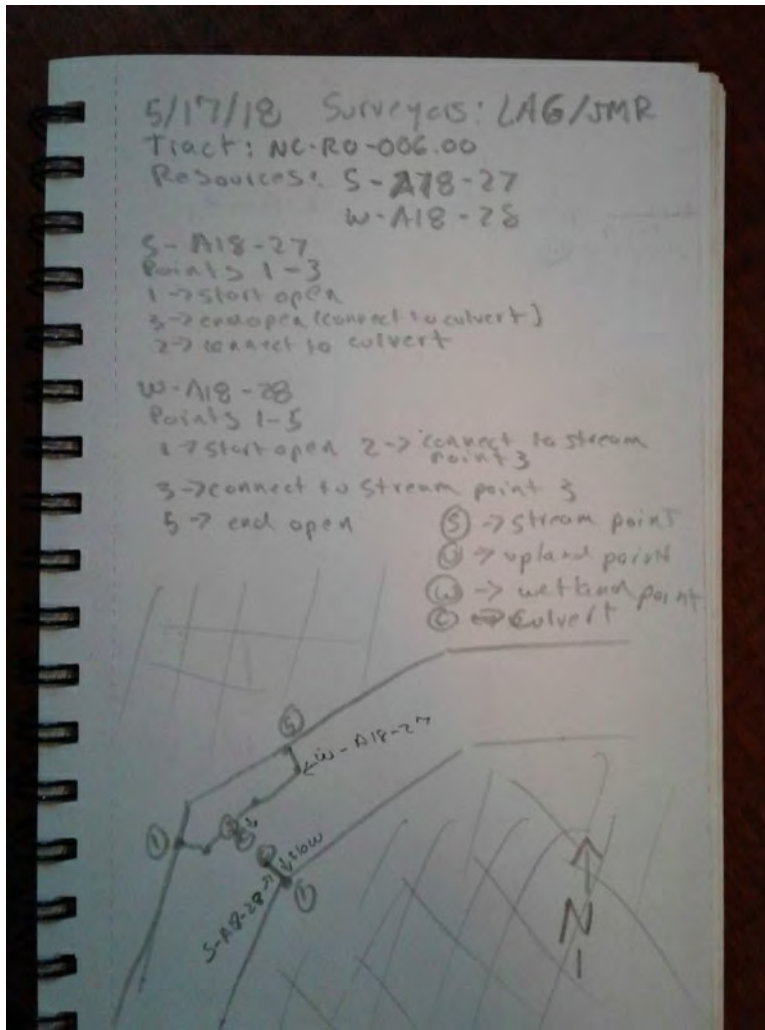 5/17/18 Surveyors: LAG/JMR
Tract: NC-RO-006.00
Resources: S-A18-27
W-A18-28
S-A18-27
Points 1-3
1 -> start open
3 -> end open (connect to culvert)
2 -> connect to culvert
W-A18-28
Points 1-5
1 -> start open 2 -> connect to stream
point 3
3 -> connect to stream point 3
5 -> end open
S -> stream point
U -> upland point
W -> wetland point
C -> culvert
5
W-A18-27
1
flow
S-A18-28
1
N